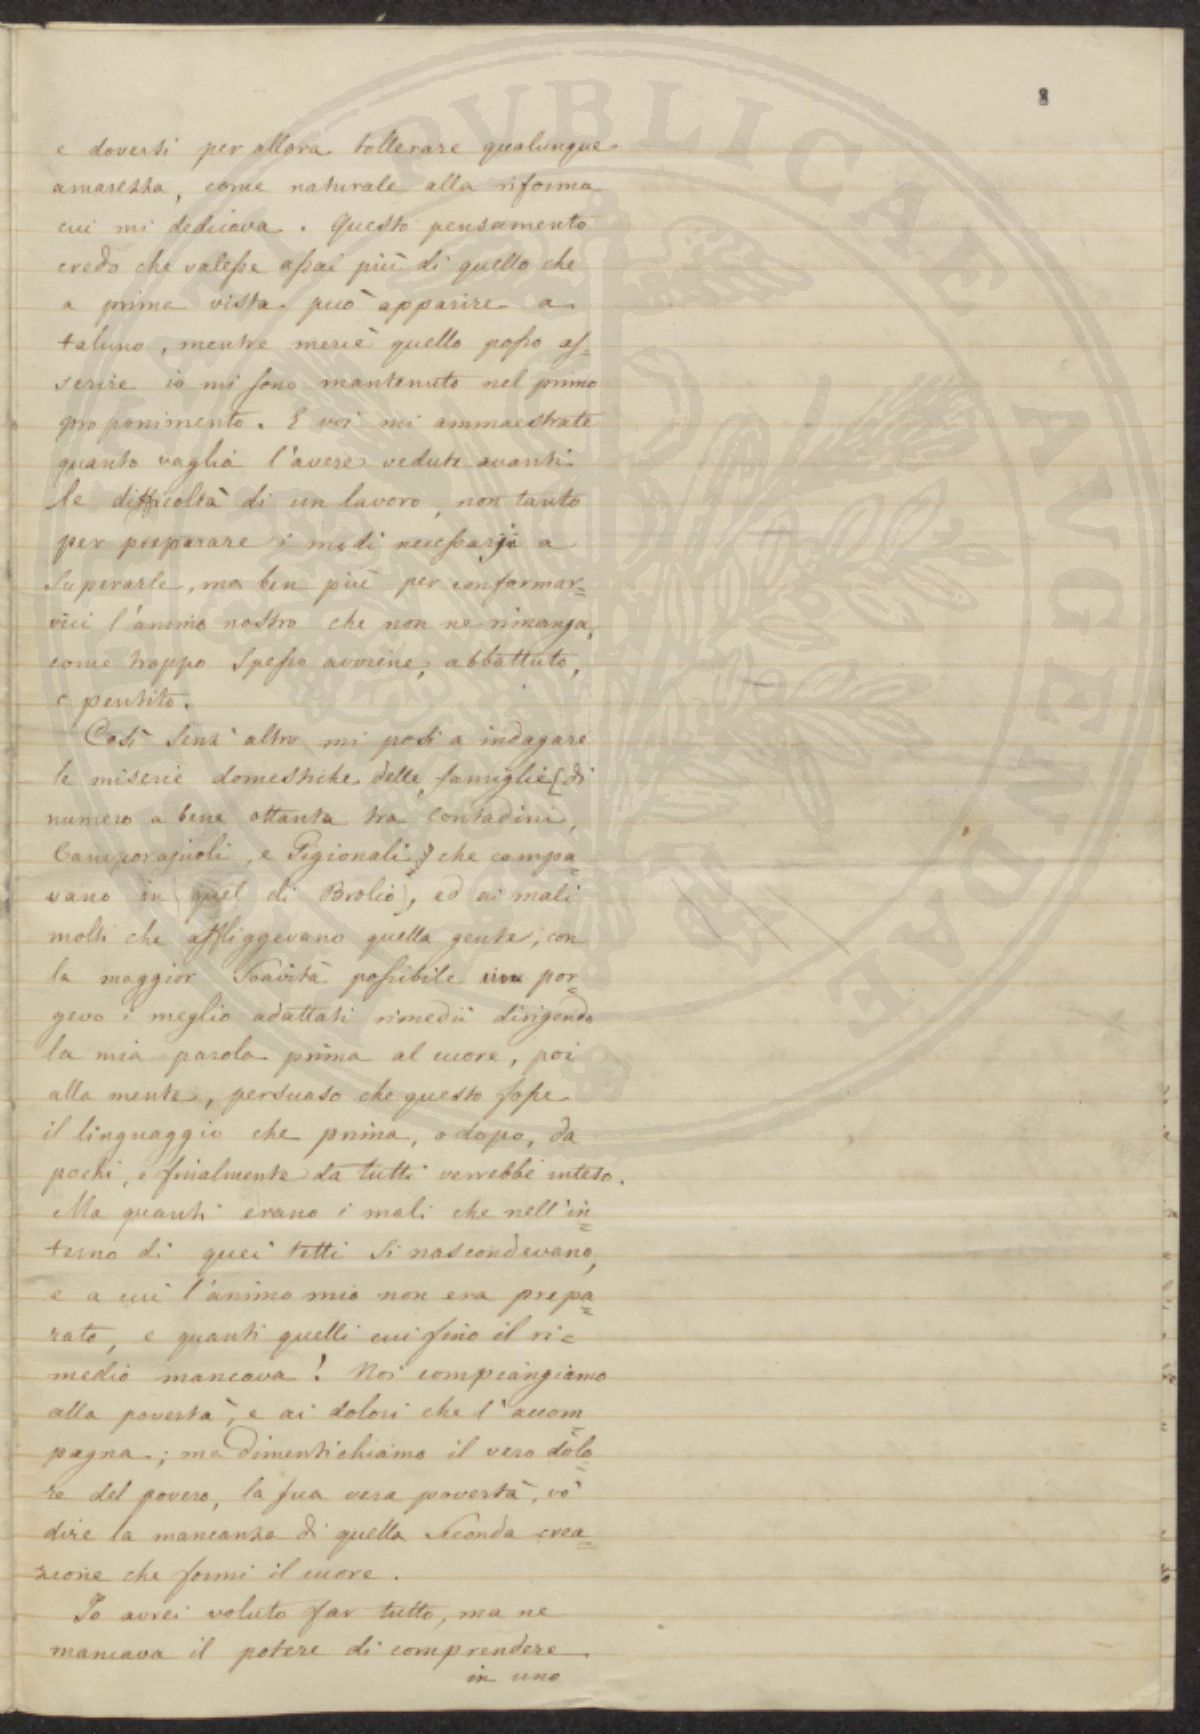 8
e doversi per allora tollerare qualunque
amarezza, come naturale alla riforma
cui mi dedicava. Questo pensamento
credo che valesse assai più di quello che
a prima vista può apparire a
taluno, mentre mercè quello posso as=
serire io mi sono mantenuto nel primo
proponimento. E voi mi ammaestrate
quanto vaglia l'avere vedute avanti
le difficoltà di un lavoro, non tanto
per preparare i modi necessarj a
superarle, ma ben più per conformar=
vici l'animo nostro che non ne rimanga,
come troppo spesso avviene, abbattuto,
e pentito.
Così senz'altro mi posi a indagare
le miserie domestiche delle famiglie (di
numero a bene ottanta tra Contadini,
Camporajuoli, e Pigionali) che campa=
vano in quel di Brolio, ed ai mali
molti che affliggevano quella gente, con
la maggior soavità possibile por=
gevo i meglio adattati rimedii dirigendo
la mia parola prima al cuore, poi
alla mente, persuaso che questo fosse
il linguaggio che prima, o dopo, da
pochi, e finalmente da tutti verrebbe inteso.
Ma quanti erano i mali che nell'in=
terno di quei tetti si nascondevano,
e a cui l'animo mio non era prepa=
rato, e quanti quelli cui fino il ri=
medio mancava! Noi compiangiamo
alla povertà, e ai dolori che l'accom=
pagna; ma dimentichiamo il vero dolo=
re del povero, la sua vera povertà, vò
dire la mancanza di quella seconda crea=
zione che formi il cuore.
Io avrei voluto far tutto, ma ne
mancava il potere di comprendere
in uno
PUBLICAE AVGENDAE